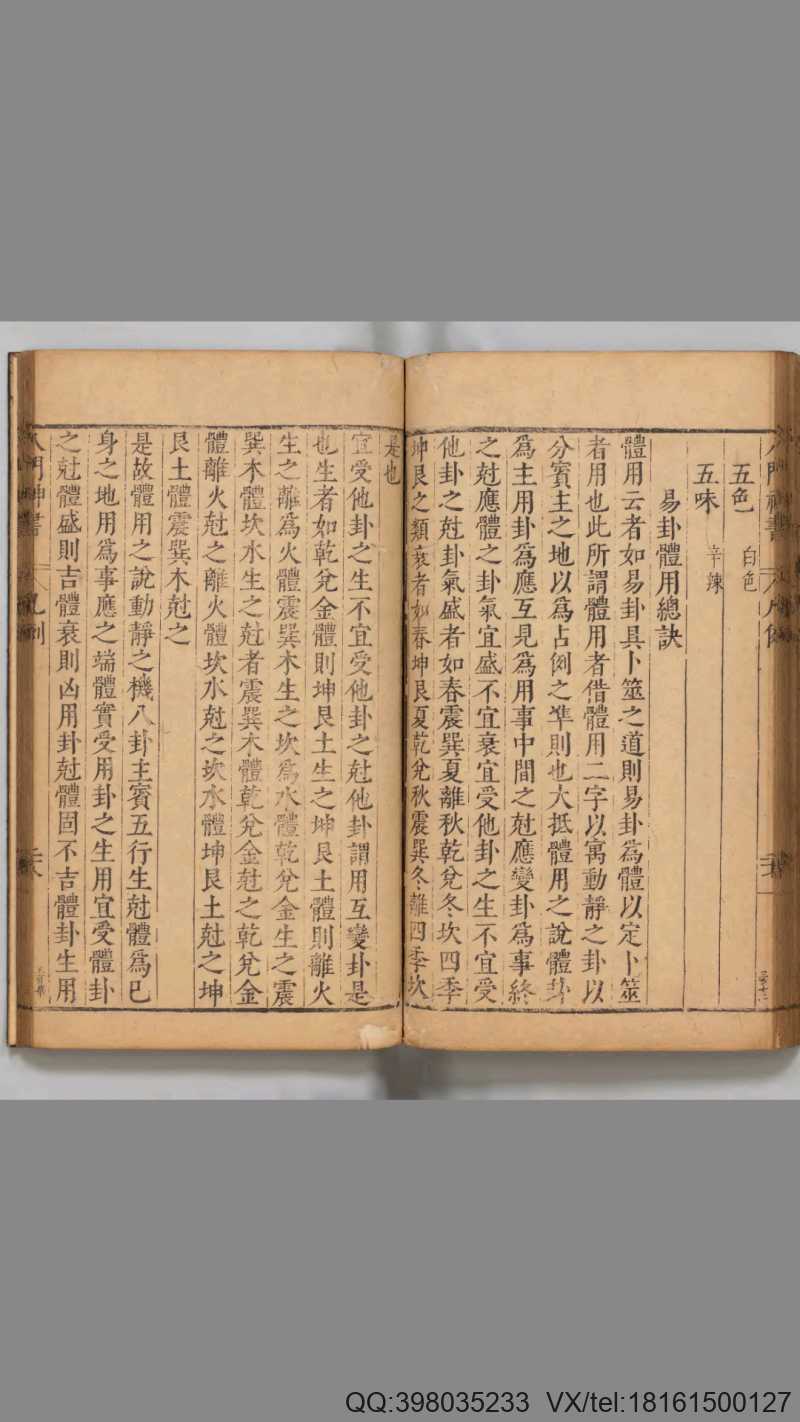 五色　白色
五味　辛辣
易卦體用總訣
體用云者如易卦具卜筮之道則易卦為體以定卜筮
者用也此所謂體用者借體用二字以寓動靜之卦以
分賓主之地以為占例之準則也大抵體用之說體卦
為主用卦為應互見為用事中間之尅應變卦為事終
之尅應體之卦氣宜盛不宜衰宜受他卦之生不宜受
他卦之尅卦氣盛者如春震巽夏離秋乾兌冬坎四季
坤艮之類衰者如春坤艮夏乾兌秋震巽冬離四季坎
是也
宜受他卦之生不宜受他卦之尅他卦謂用互變卦是
也生者如乾兌金體則坤艮土生之坤艮土體則離火
生之離為火體震巽木生之坎為水體乾兌金生之震
巽木體坎水生之尅者震巽木體乾兌金尅之乾兌金
體離火尅之離火體坎水尅之坎水體坤艮土尅之坤
艮土體震巽木尅之
是故體用之說動靜之機八卦主賓五行生尅體為已
身之地用為事應之端體實受用卦之生用宜受體卦
之尅體盛則吉體衰則凶用卦尅體固不吉體卦生用
QQ:398035233 VX/tel:18161500127